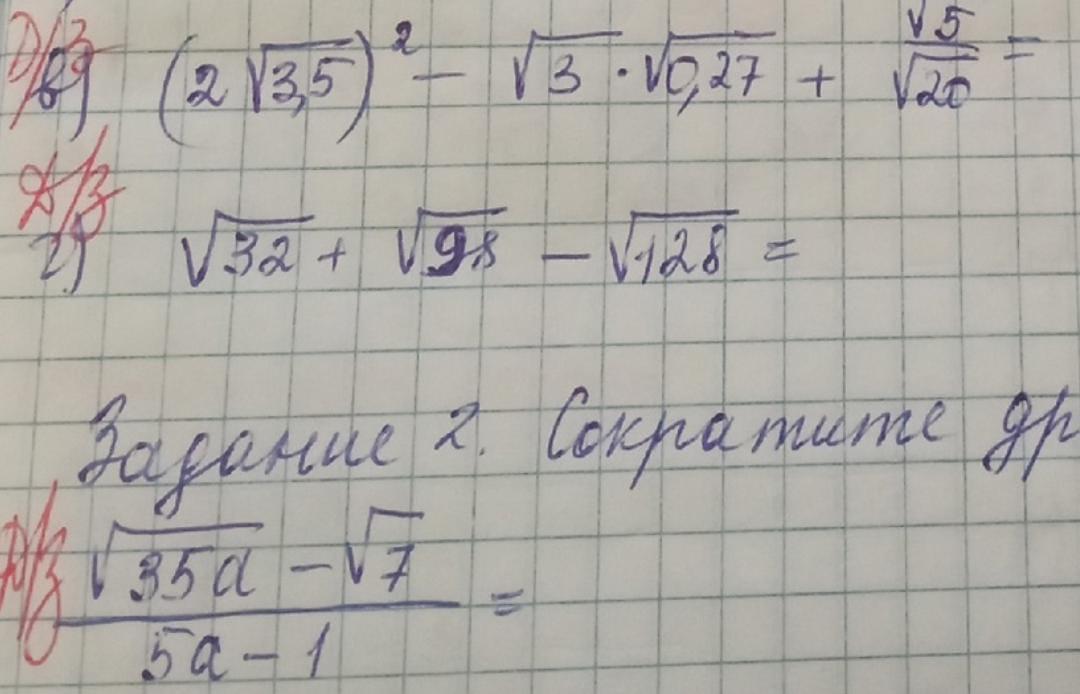 Д/з
в) (2√3,5)² − √3 · √0,27 + √5/√20 =
Д/з
г) √32 + √98 − √128 =
Задание 2. Сократите др
Д/з (√35a − √7)/(5a − 1) =